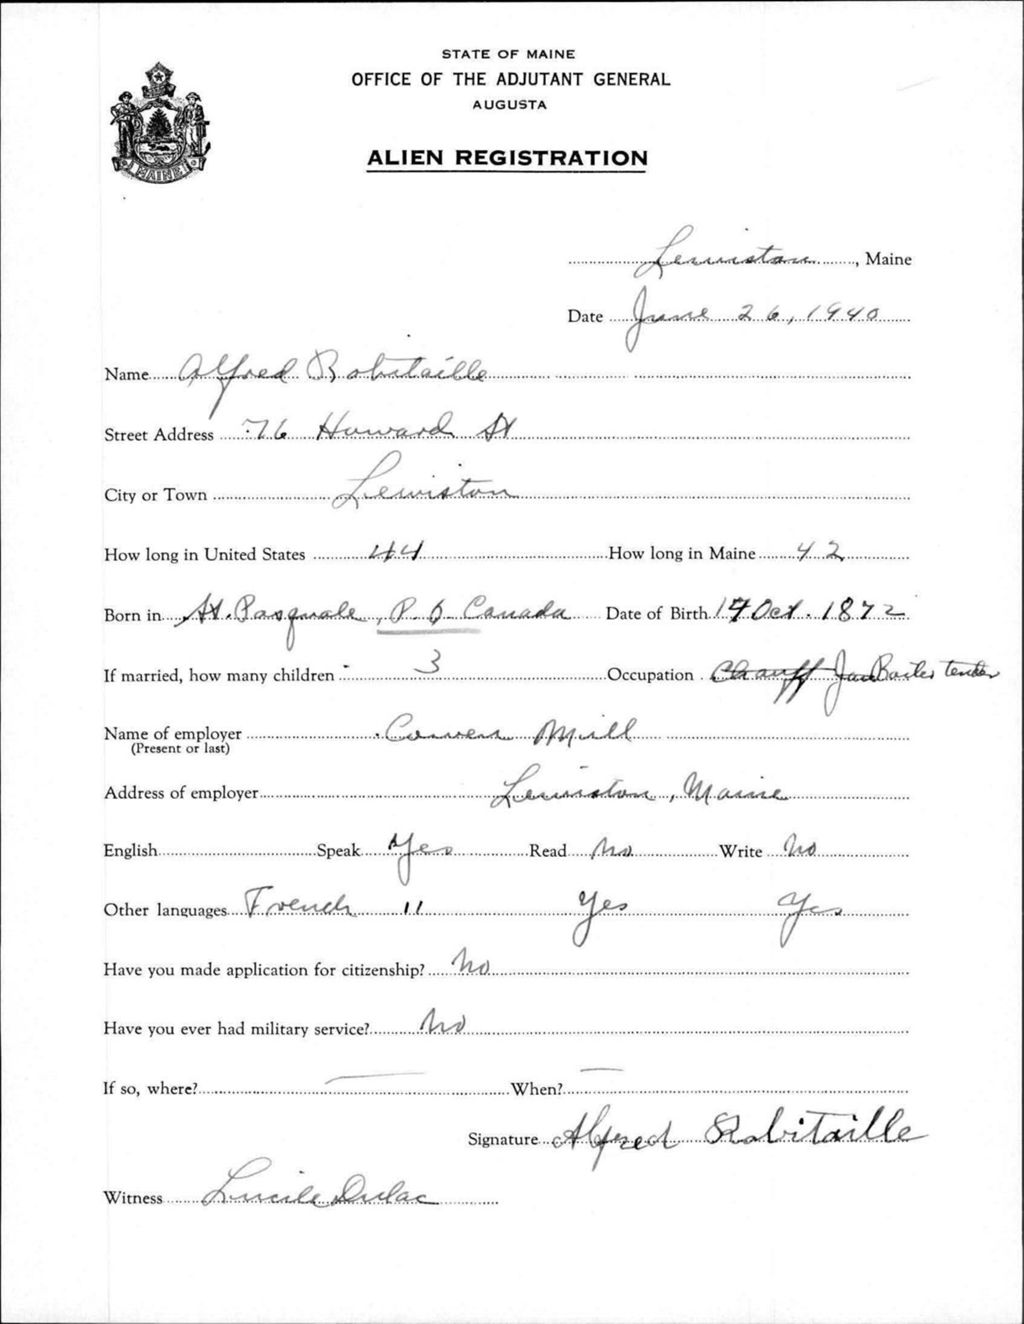 STATE OF MAINE
OFFICE OF THE ADJUTANT GENERAL
AUGUSTA
ALIEN REGISTRATION
MAINE
Lewiston, Maine
Date June 26, 1940
Name Alfred Robitaille
Street Address 76 Howard St
City or Town Lewiston
How long in United States 44 How long in Maine 42
Born in St. Pasquale, P.Q Canada Date of Birth 17 Oct. 1872
If married, how many children 3 Occupation Chauff
Name of employer Cowen Mill
(Present or last)
Address of employer Lewiston, Maine
English Speak Yes Read No Write No
Other languages French " Yes Yes
Have you made application for citizenship? No
Have you ever had military service? No
If so, where? — When? —
Signature Alfred Robitaille
Witness Lucile Dulac